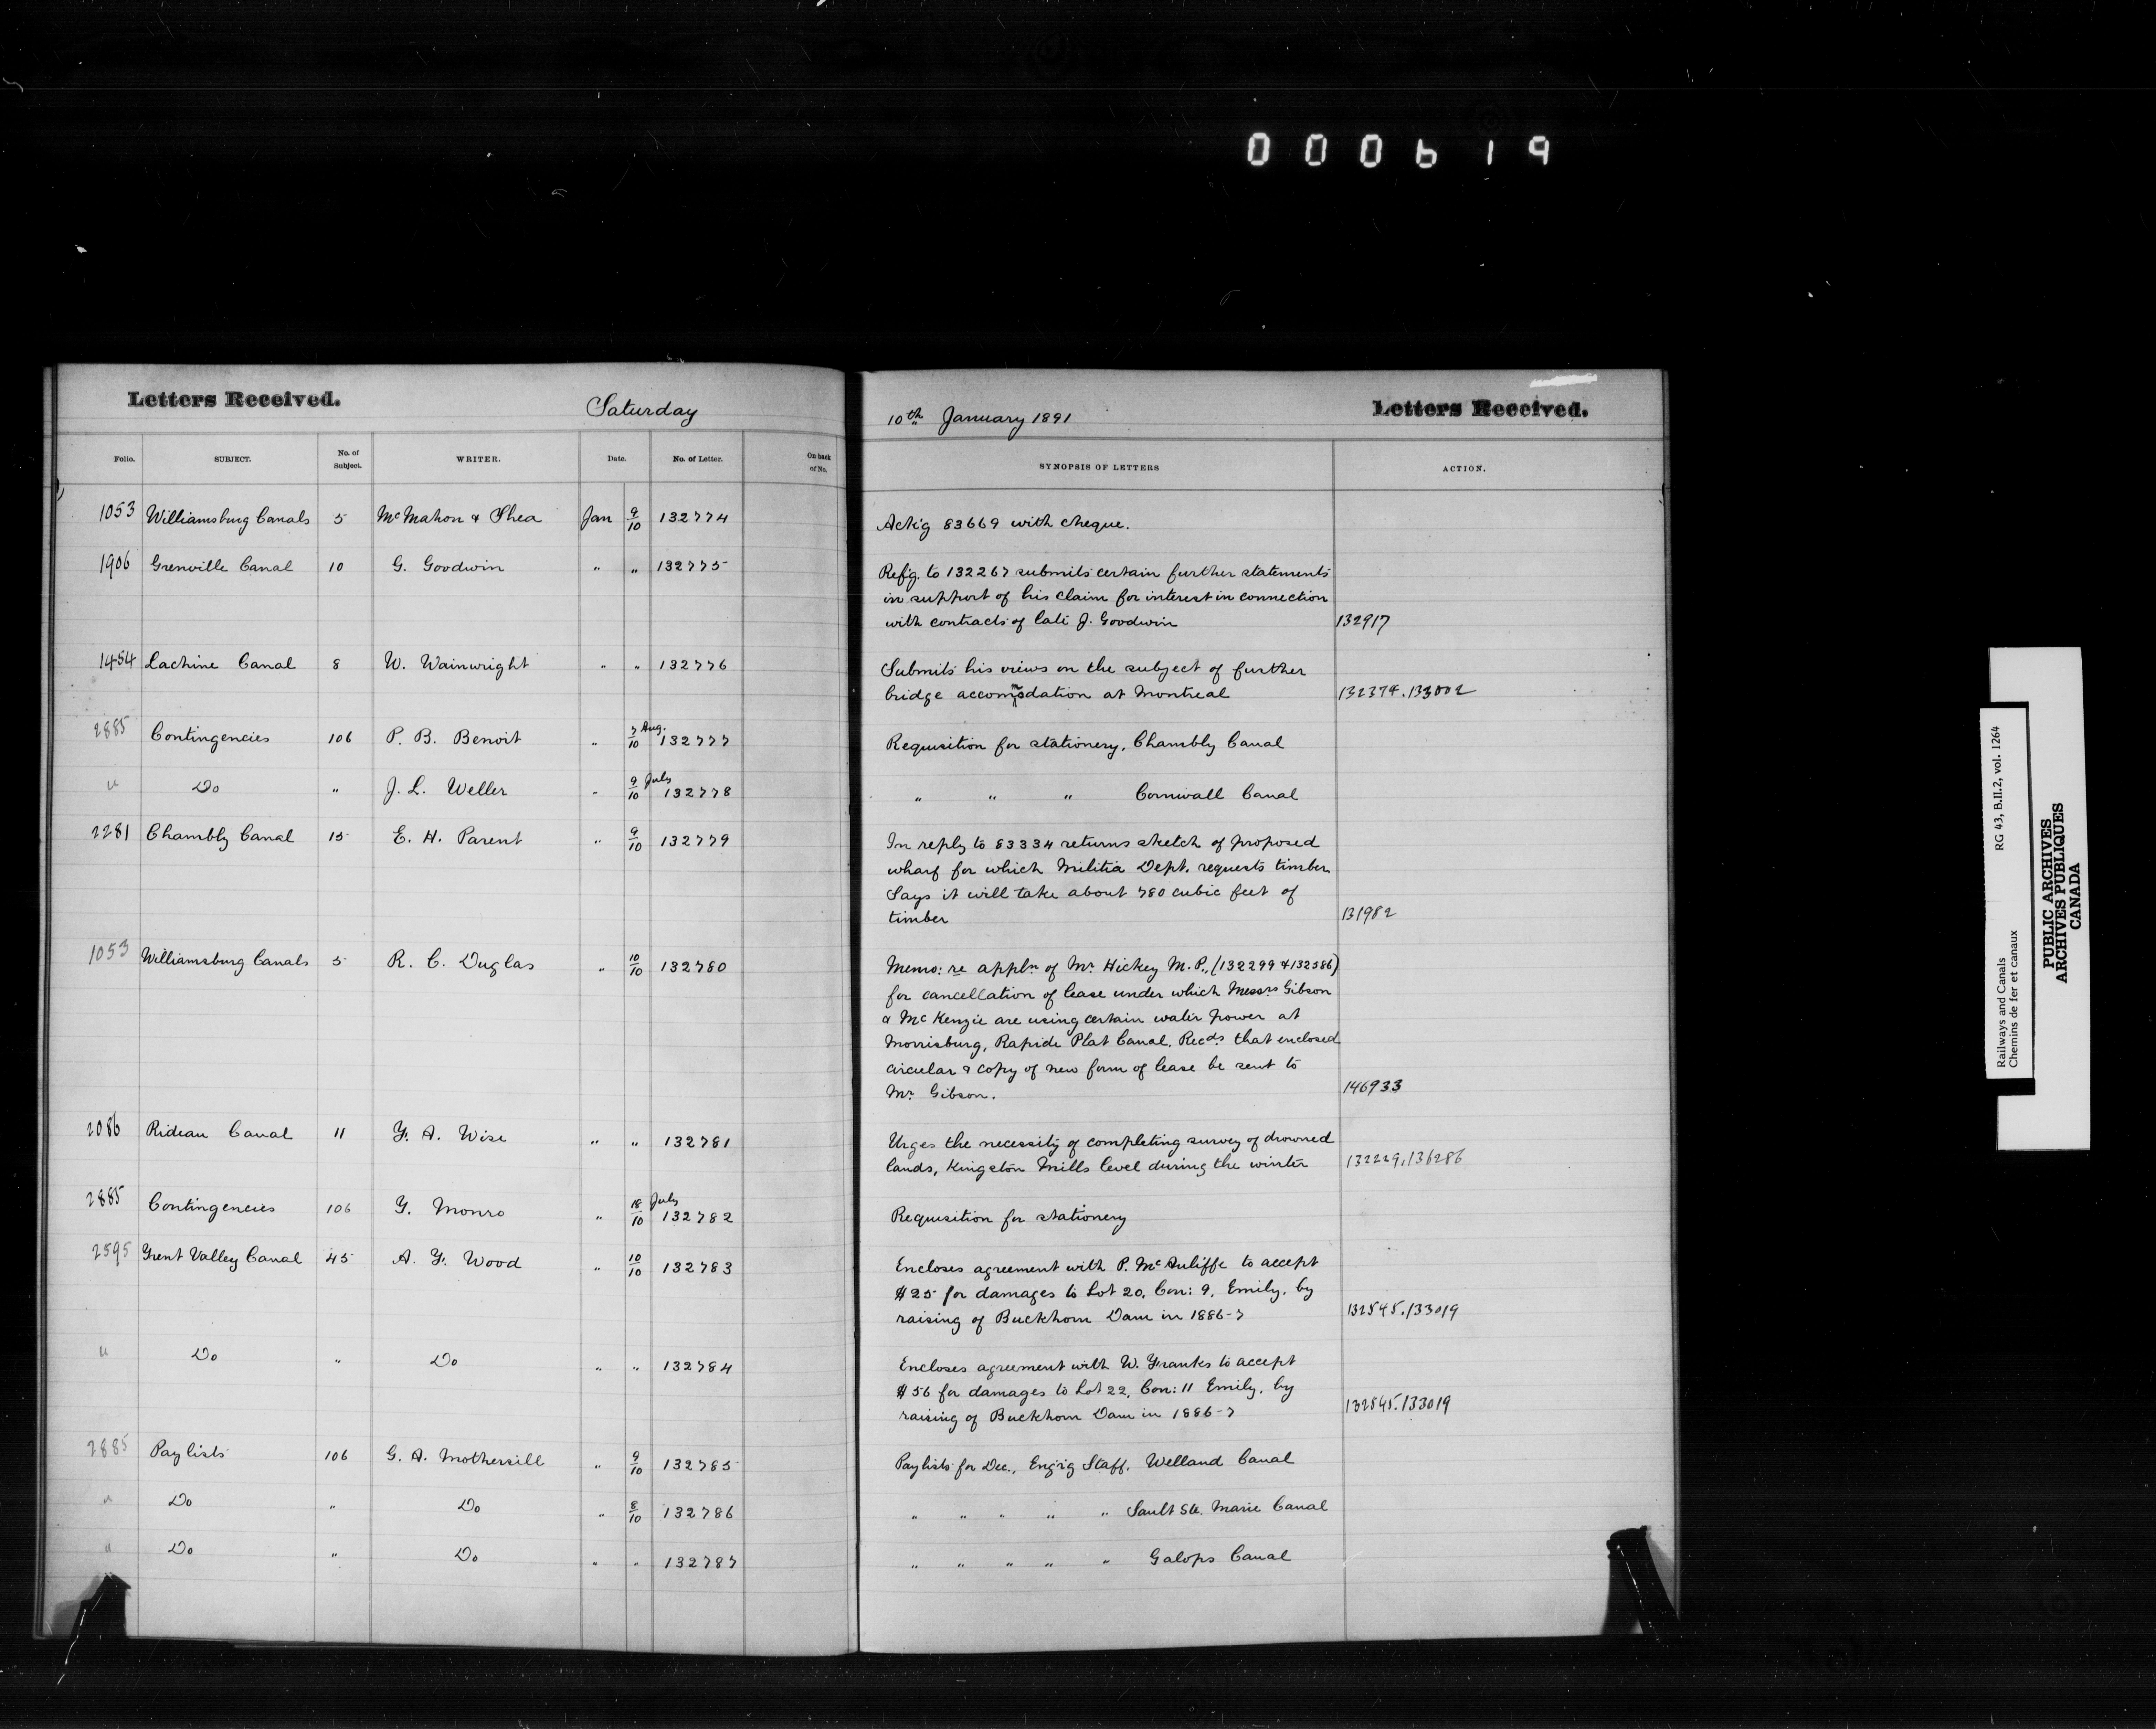 000619
Letters Received.
Saturday
10th January 1891
Letters Received.
Folio. SUBJECT. No. of Subject. WRITER. Date. No. of Letter. On back of No. SYNOPSIS OF LETTERS ACTION.
1053 Williamsburg Canals 5 McMahon & Shea Jan 9/10 132774 Ack'g 83669 with cheque.
1906 Grenville Canal 10 G. Goodwin " " 132775 Ref'g. to 132267 submits certain further statements
in support of his claim for interest in connection
with contracts of late J. Goodwin 132917
1454 Lachine Canal 8 W. Wainwright " " 132776 Submits his views on the subject of further
bridge accommodation at Montreal 132374.133002
2885 Contingencies 106 P. B. Benoit " 7/10 Aug. 132777 Requisition for stationery, Chambly Canal
" Do " J. L. Weller " 9/10 July 132778 " " " Cornwall Canal
2281 Chambly Canal 15 E. H. Parent " 9/10 132779 In reply to 83334 returns sketch of proposed
wharf for which Militia Dept. requests timber.
Says it will take about 780 cubic feet of
timber 131982
1053 Williamsburg Canals 5 R. C. Duglas " 10/10 132780 Memo: re appln of Mr Hickey M.P., (132299 & 132586)
for cancellation of lease under which Messrs Gibson
& McKenzie are using certain water power at
Morrisburg, Rapide Plat Canal. Recds that enclosed
circular & copy of new form of lease be sent to
Mr. Gibson. 146933
2086 Rideau Canal 11 F. A. Wise " " 132781 Urges the necessity of completing survey of drowned
lands, Kingston Mills level during the winter 132229,136286
2885 Contingencies 106 T. Monro " 18/10 July 132782 Requisition for stationery
2595 Trent Valley Canal 45 A. F. Wood " 10/10 132783 Encloses agreement with P. McAuliffe to accept
$25 for damages to Lot 20, Con: 9, Emily, by
raising of Buckhorn Dam in 1886-7 132545.133019
" Do " Do " " 132784 Encloses agreement with W. Franks to accept
$56 for damages to Lot 22, Con: 11 Emily, by
raising of Buckhorn Dam in 1886-7 132545.133019
2885 Paylists 106 G. A. Mothersill " 9/10 132785 Paylists for Dec., Eng'g Staff, Welland Canal
" Do " Do " 8/10 132786 " " " " " Sault Ste. Marie Canal
" Do " Do " " 132787 " " " " " Galops Canal
Railways and Canals RG 43, B.II.2, vol. 1264
Chemins de fer et canaux
PUBLIC ARCHIVES
ARCHIVES PUBLIQUES
CANADA